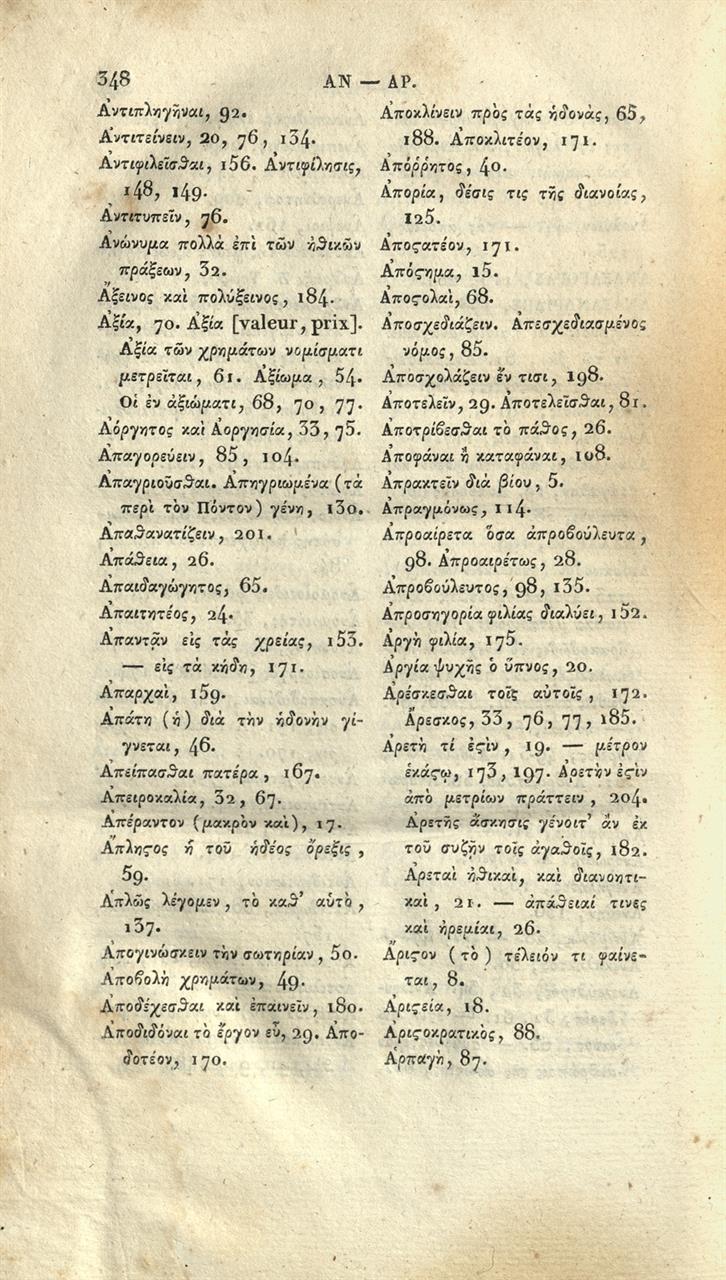 348
ΑΝ — ΑΡ.
Ἀντιπληγῆναι, 92.
Ἀντιτείνειν, 20, 76, 134.
Ἀντιφιλεῖσθαι, 156. Ἀντιφίλησις,
148, 149.
Ἀντιτυπεῖν, 76.
Ἀνώνυμα πολλὰ ἐπὶ τῶν ἠθικῶν
πράξεων, 32.
Ἄξεινος καὶ πολύξεινος, 184.
Ἀξία, 70. Ἀξία [valeur, prix].
Ἀξία τῶν χρημάτων νομίσματι
μετρεῖται, 61. Ἀξίωμα, 54.
Οἱ ἐν ἀξιώματι, 68, 70, 77.
Ἀόργητος καὶ Ἀοργησία, 33, 75.
Ἀπαγορεύειν, 85, 104.
Ἀπαγριοῦσθαι. Ἀπηγριωμένα (τὰ
περὶ τὸν Πόντον) γένη, 130.
Ἀπαθανατίζειν, 201.
Ἀπάθεια, 26.
Ἀπαιδαγώγητος, 65.
Ἀπαιτητέος, 24.
Ἀπαντᾷν εἰς τὰς χρείας, 153.
— εἰς τὰ κήδη, 171.
Ἀπαρχαὶ, 159.
Ἀπάτη (ἡ) διὰ τὴν ἡδονὴν γί-
γνεται, 46.
Ἀπείπασθαι πατέρα, 167.
Ἀπειροκαλία, 32, 67.
Ἀπέραντον (μακρὸν καὶ), 17.
Ἄπληϛος ἡ τοῦ ἡδέος ὄρεξις,
59.
Ἁπλῶς λέγομεν, τὸ καθ' αὑτὸ,
137.
Ἀπογινώσκειν τὴν σωτηρίαν, 50.
Ἀποβολὴ χρημάτων, 49.
Ἀποδέχεσθαι καὶ ἐπαινεῖν, 180.
Ἀποδιδόναι τὸ ἔργον εὖ, 29. Ἀπο-
δοτέον, 170.
Ἀποκλίνειν πρὸς τὰς ἡδονὰς, 65,
188. Ἀποκλιτέον, 171.
Ἀπόῤῥητος, 40.
Ἀπορία, δέσις τις τῆς διανοίας,
125.
Ἀποϛατέον, 171.
Ἀπόϛημα, 15.
Ἀποϛολαὶ, 68.
Ἀποσχεδιάζειν. Ἀπεσχεδιασμένος
νόμος, 85.
Ἀποσχολάζειν ἔν τισι, 198.
Ἀποτελεῖν, 29. Ἀποτελεῖσθαι, 81.
Ἀποτρίβεσθαι τὸ πάθος, 26.
Ἀποφάναι ἢ καταφάναι, 108.
Ἀπρακτεῖν διὰ βίου, 5.
Ἀπραγμόνως, 114.
Ἀπροαίρετα ὅσα ἀπροβούλευτα,
98. Ἀπροαιρέτως, 28.
Ἀπροβούλευτος, 98, 135.
Ἀπροσηγορία φιλίας διαλύει, 152.
Ἀργὴ φιλία, 175.
Ἀργία ψυχῆς ὁ ὕπνος, 20.
Ἀρέσκεσθαι τοῖς αὐτοῖς, 172.
Ἄρεσκος, 33, 76, 77, 185.
Ἀρετὴ τί ἐϛὶν, 19. — μέτρον
ἑκάϛῳ, 173, 197. Ἀρετὴν ἐϛὶν
ἀπὸ μετρίων πράττειν, 204.
Ἀρετῆς ἄσκησις γένοιτ' ἂν ἐκ
τοῦ συζῇν τοῖς ἀγαθοῖς, 182.
Ἀρεταὶ ἠθικαὶ, καὶ διανοητι-
καὶ, 21. — ἀπάθειαί τινες
καὶ ἠρεμίαι, 26.
Ἄριϛον (τὸ) τέλειόν τι φαίνε-
ται, 8.
Ἀριϛεία, 18.
Ἀριϛοκρατικὸς, 88.
Ἁρπαγὴ, 87.